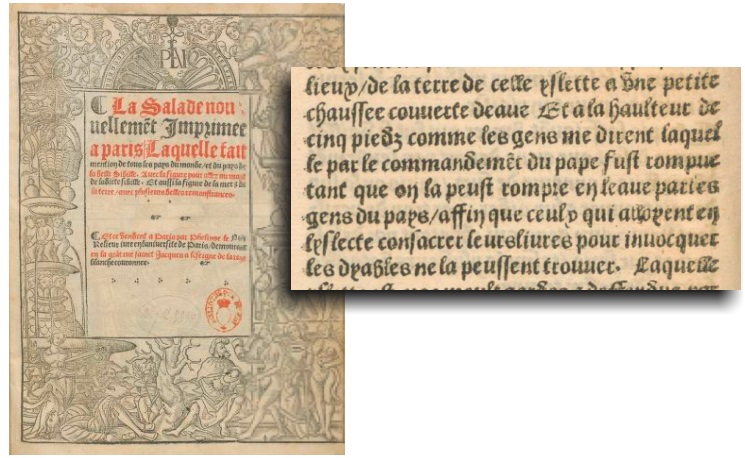 La Salade nou
uellemēt Imprimee
a paris Laquelle fait
mention de tous les pays du monde/et du pays de
la belle Sibille. Auec la figure pour aller au mont
de la belle sibille. Et aussi la figure de la mer & de
la terre/auec plusieurs belles remonstrances.
Et se Vendent a Paris par Phelippe le Noir
Relieur iure en luniuersite de Paris. demourant
en la grāt rue sainct Jacques a lenseigne de la rose
blanche couronnee.
lieux/de la terre de celle yslette a Vne petite
chaussee couuerte deaue Et a la haulteur de
cinq piedz comme les gens me dirent laquel
le par le commandemēt du pape fust rompue
tant que on la peust rompre en leaue par les
gens du pays/affin que ceulx qui alloyent en
lyslecte consacrer leurs liures pour inuocquer
les dyables ne la peussent trouuer. Laquelle